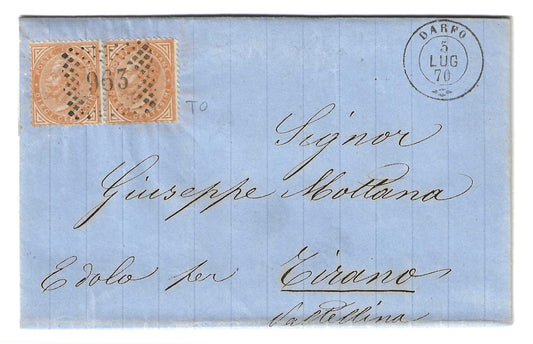 963
TO
DARFO
5
LUG
70
Signor
Giuseppe Mottana
Edolo per Tirano
Valtellina